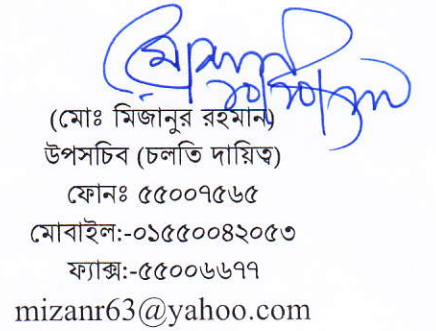 (মোঃ মিজানুর রহমান)
উপসচিব (চলতি দায়িত্ব)
ফোনঃ ৫৫০০৭৫৬৫
মোবাইল:-০১৫৫০০৪২০৫৩
ফ্যাক্স:-৫৫০০৬৬৭৭
mizanr63@yahoo.com